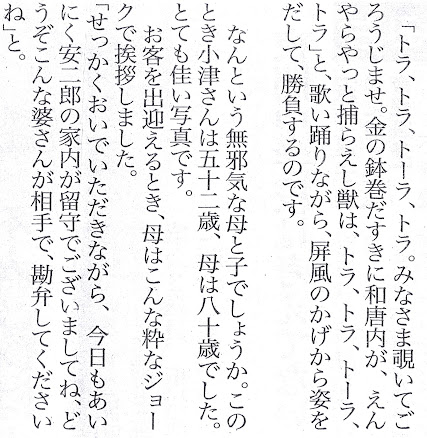 「トラ、トラ、トーラ、トラ。みなさま覗いてご
ろうじませ。金の鉢巻だすきに和唐内が、えん
やらやっと捕らえし獣は、トラ、トラ、トーラ、
トラ」と、歌い踊りながら、屏風のかげから姿を
だして、勝負するのです。
なんという無邪気な母と子でしょうか。この
とき小津さんは五十二歳、母は八十歳でした。
とても佳い写真です。
お客を出迎えるとき、母はこんな粋なジョー
クで挨拶しました。
「せっかくおいでいただきながら、今日もあい
にく安二郎の家内が留守でございましてね、ど
うぞこんな婆さんが相手で、勘弁してください
ね」と。